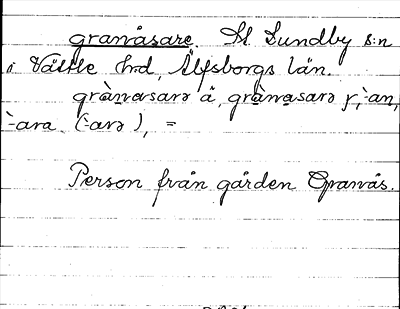 granåsare. St Lundby s:n
i Vättle hd, Älfsborgs län.
grànasarə å, grànasarə r, -̀an,
-̀ara (-̀arə), =
Person från gården Granås.